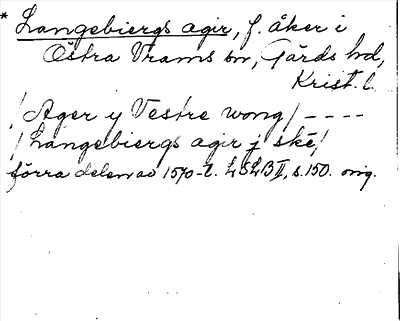 * Langebiergs agir, f. åker i
Östra Vrams sn, Gärds hd,
Krist. l.
/Ager y Vestre wong/ ----
/Langebiergs agir j ské/
förra delen av 1570-t. LSLB II, s. 150. orig.